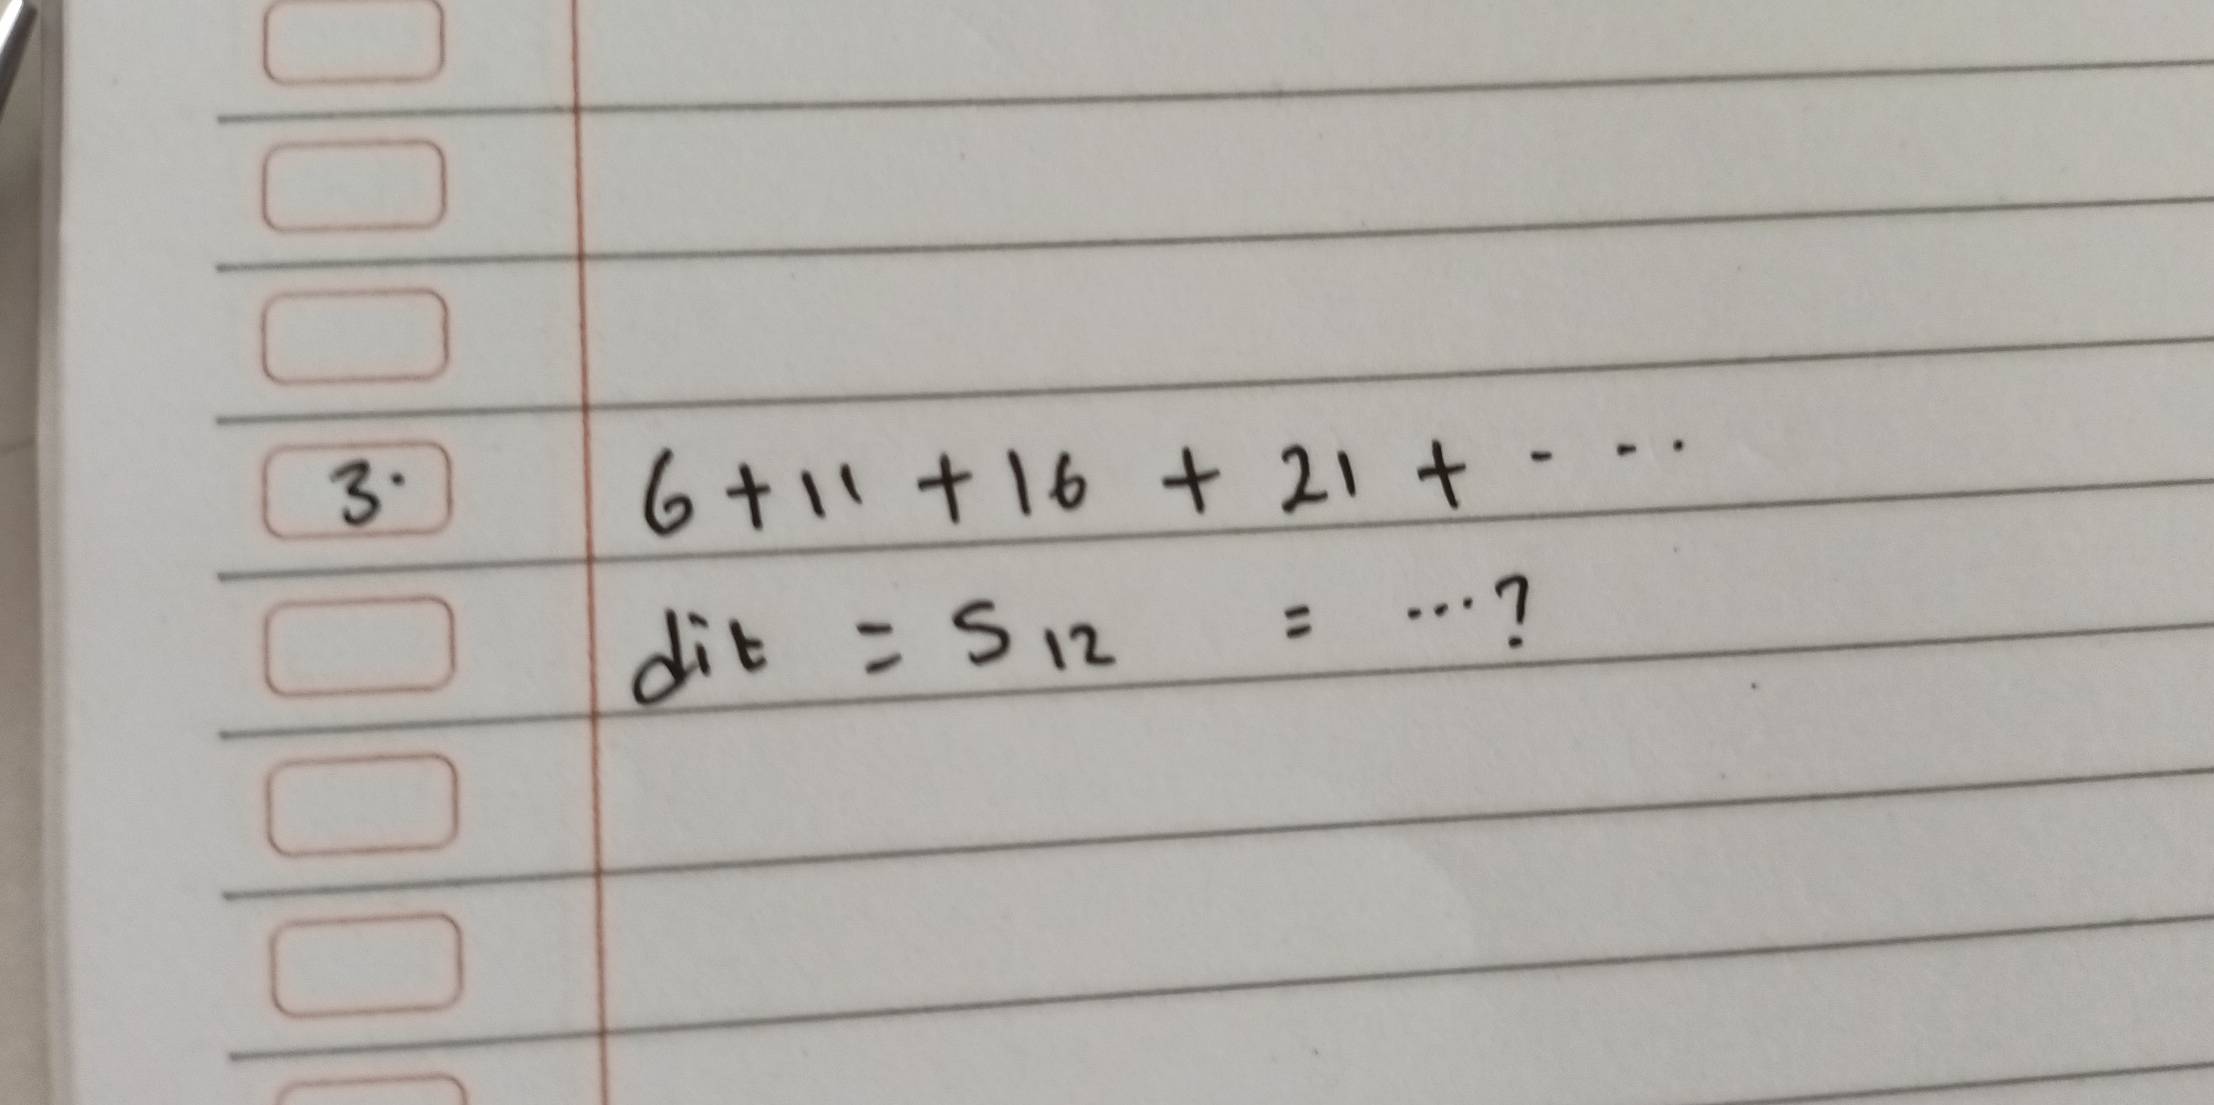 3. 6 + 11 + 16 + 21 + - - ..
dit = S 12 = ...?